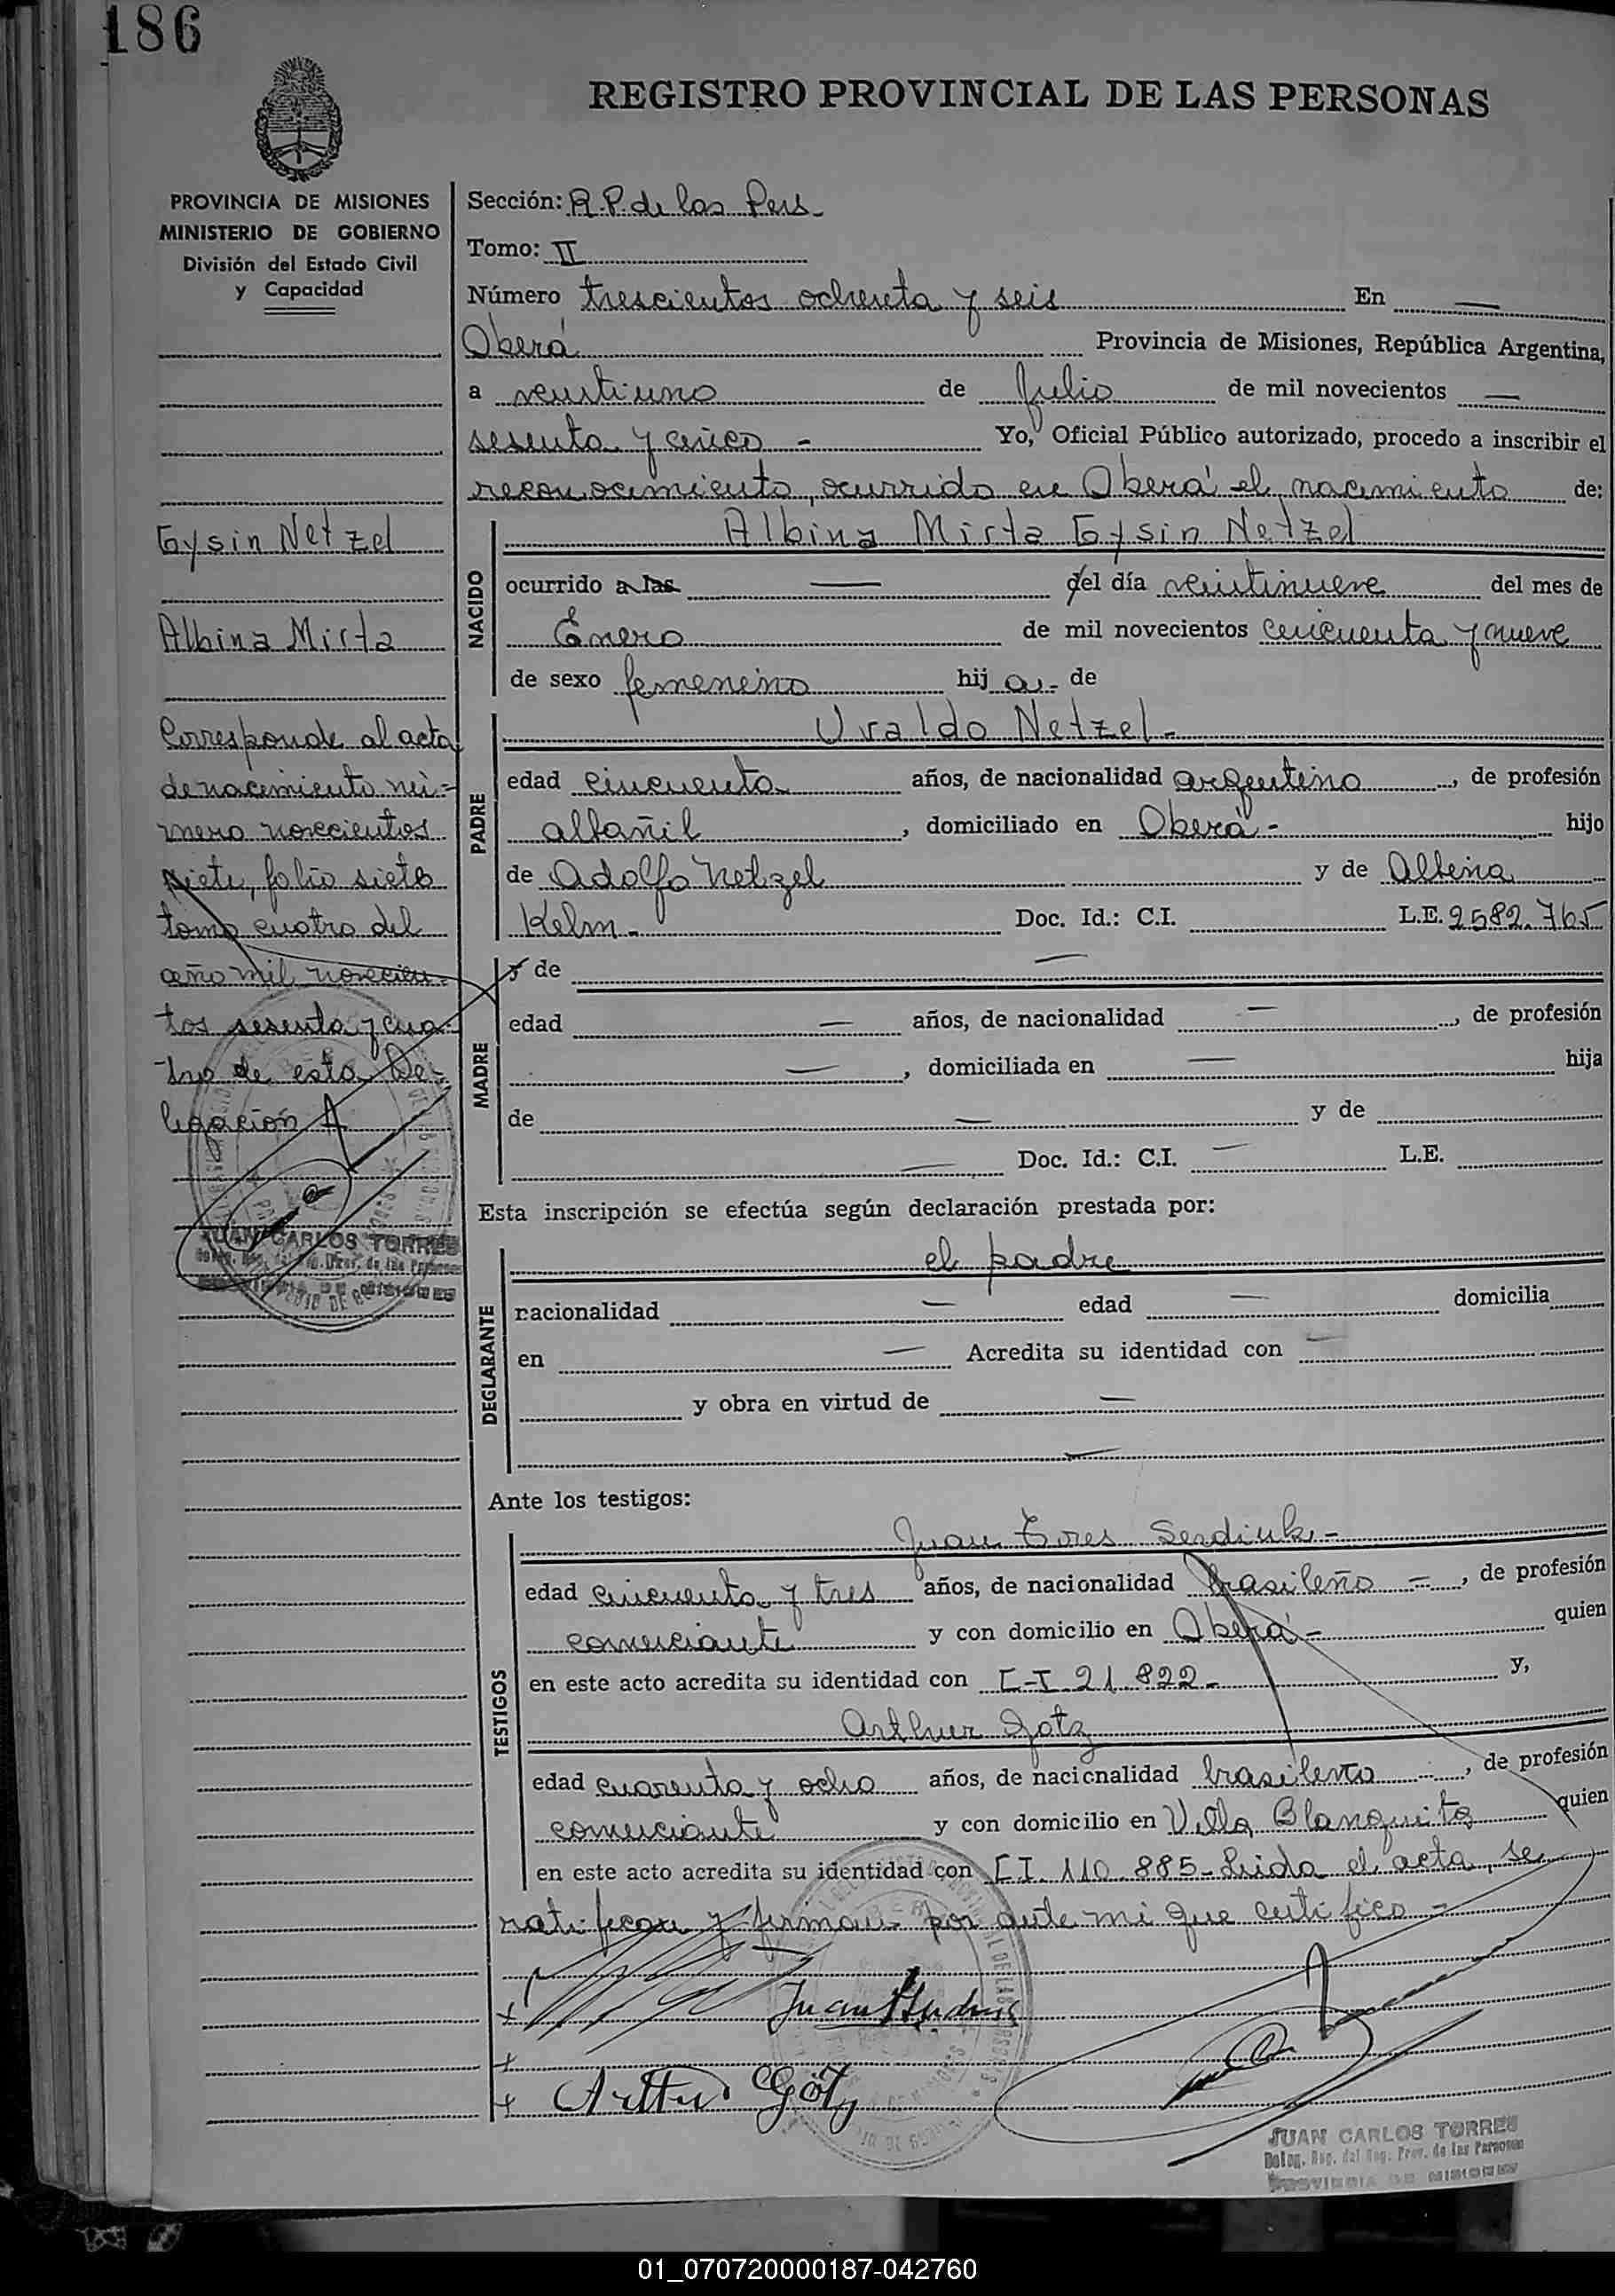 186
REGISTRO PROVINCIAL DE LAS PERSONAS
PROVINCIA DE MISIONES
MINISTERIO DE GOBIERNO
División del Estado Civil
y Capacidad
Gysin Netzel
Albina Mirta
Corresponde al acta
de nacimiento nú-
mero novecientos
siete, folio siete
tomo cuatro del
año mil novecien-
tos sesenta y cua-
tro de esta De-
legación
JUAN CARLOS TORRES
Sección: R.P. de las Pers.
Tomo: II
Número trescientos ochenta y seis En —
Oberá Provincia de Misiones, República Argentina,
a veintiuno de Julio de mil novecientos —
sesenta y cinco - Yo, Oficial Público autorizado, procedo a inscribir el
reconocimiento, ocurrido en Oberá el nacimiento de:
NACIDO
Albina Mirta Gysin Netzel
ocurrido a las — del día veintinueve del mes de
Enero de mil novecientos cincuenta y nueve
de sexo femenino hij a.- de
PADRE
Uvaldo Netzel-
edad cincuenta años, de nacionalidad argentino, de profesión
albañil, domiciliado en Oberá- hijo
de Adolfo Netzel y de Albina
Kelm- Doc. Id.: C.I. L.E. 2582.765
MADRE
y de —
edad — años, de nacionalidad —, de profesión
—, domiciliada en — hija
de — y de
— Doc. Id.: C.I. — L.E.
Esta inscripción se efectúa según declaración prestada por:
DEGLARANTE
el padre
nacionalidad — edad — domicilia
en — Acredita su identidad con —
y obra en virtud de —
—
Ante los testigos:
TESTIGOS
Juan Serdiuk-
edad cincuenta y tres años, de nacionalidad brasileño -, de profesión
comerciante y con domicilio en Oberá- quien
en este acto acredita su identidad con C-I 21.822- y,
Arthur Gotz
edad cuarenta y ocho años, de nacionalidad brasilero, de profesión
comerciante y con domicilio en Villa Blanquita quien
en este acto acredita su identidad con C I. 110.885- Leida el acta, se
ratifican y firman por ante mi que certifico -
Juan
Arthur Götz
JUAN CARLOS TORRES
Deleg. Reg. del Reg. Prov. de las Personas
PROVINCIA DE MISIONES
01_070720000187-042760